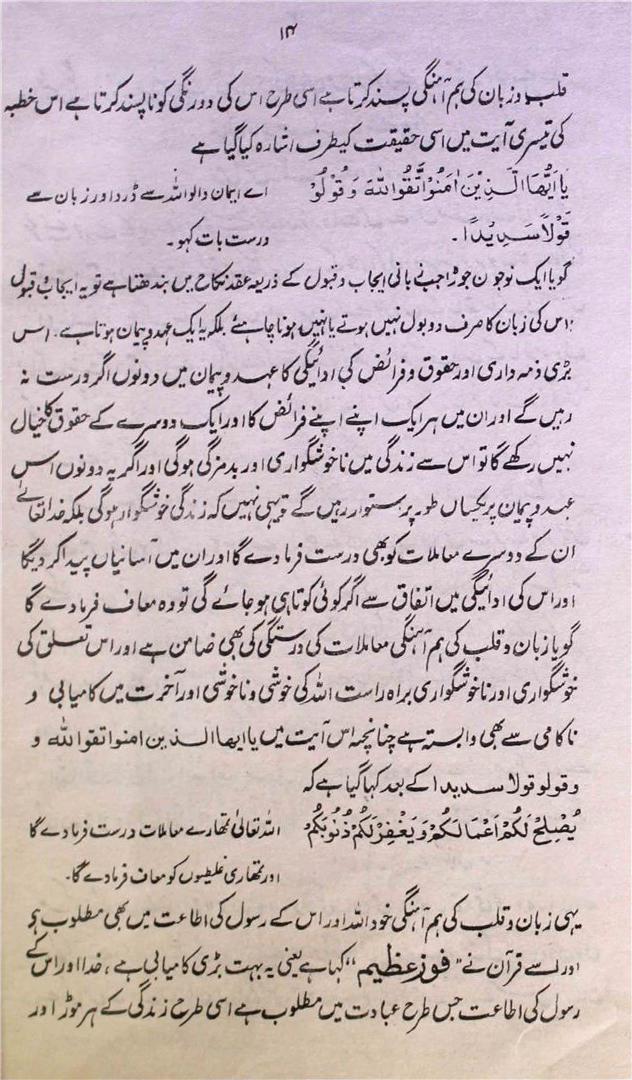 ۱۴
قلب و زبان کی ہم آہنگی پسند کرتا ہے اسی طرح اس کی دورنگی کو ناپسند کرتا ہے اس خطبہ
کی تیسری آیت میں اسی حقیقت کیطرف اشارہ کیا گیا ہے
یا ایُّھا الَّذِیْنَ اٰمَنُوْا تَّقُوْا اللہَ وَ قُوْلُوْ اے ایمان والو اللہ سے ڈرو اور زبان سے
قَوْلاً سَدِیْدًا۔ درست بات کہو۔
گویا ایک نوجون جوڑا جب زبانی ایجاب و قبول کے ذریعہ عقد نکاح میں بندھتا ہے تو یہ ایجاب قبول
اس کی زبان کا صرف دو بول نہیں ہوتے یا نہیں ہونا چاہئے بلکہ یہ ایک عہد و پیمان ہوتا ہے۔ اس
بڑی ذمہ داری اور حقوق و فرائض کی ادائیگی کا عہد و پیمان میں دونوں اگر درست نہ
رہیں گے اور ان میں ہر ایک اپنے اپنے فرائض کا اور ایک دوسرے کے حقوق کا خیال
نہیں رکھے گا تو اس سے زندگی میں ناخوشگواری اور بدمزگی ہوگی اور اگر یہ دونوں اس
عہد و پیمان پر یکساں طور پر ستوار رہیں گے تو یہی نہیں کہ زندگی خوشگوار ہوگی بلکہ خدا تعالےٰ
ان کے دوسرے معاملات کو بھی درست فرما دے گا اور ان میں آسانیاں پیدا کر دیگا
اور اس کی ادائیگی میں اتفاق سے اگر کوئی کوتاہی ہو جائے گی تو وہ معاف فرما دے گا
گویا زبان و قلب کی ہم آہنگی معاملات کی درستگی کی بھی ضامن ہے اور اس تعلق کی
خوشگواری اور ناخوشگواری براہ راست اللہ کی خوشی و ناخوشی اور آخرت میں کامیابی و
ناکامی سے بھی وابستہ ہے چنانچہ اس آیت میں یا ایھا الذین امنوا تقوا اللہ و
وقولو قولا سدیدا کے بعد کہا گیا ہے کہ
یُصْلِحْ لَکُمْ اَعْمَالَکُمْ وَیَغْفِرْ لَکُمْ ذُنُوْبَکُمْ اللہ تعالیٰ تمھارے معاملات درست فرما دے گا
اور تمھاری غلیطوں کو معاف فرما دے گا۔
یہی زبان و قلب کی ہم آہنگی خود اللہ اور اس کے رسول کی اطاعت میں بھی مطلوب ہو
اور اسے قرآن نے "فوز عظیم" کہا ہے یعنی یہ بہت بڑی کامیابی ہے، خدا اور اس کے
رسول کی اطاعت جس طرح عبادت میں مطلوب ہے اسی طرح زندگی کے ہر موڑ اور